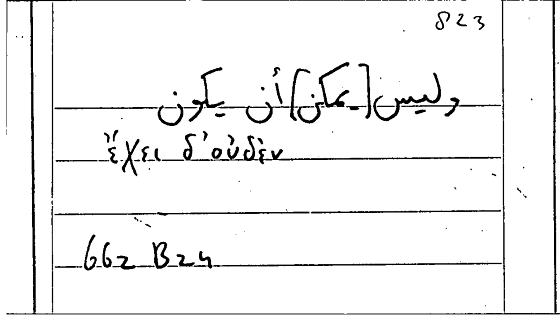 823
وليس [يمكن] أن يكون
ἔχει δ' οὐδὲν
662 B24